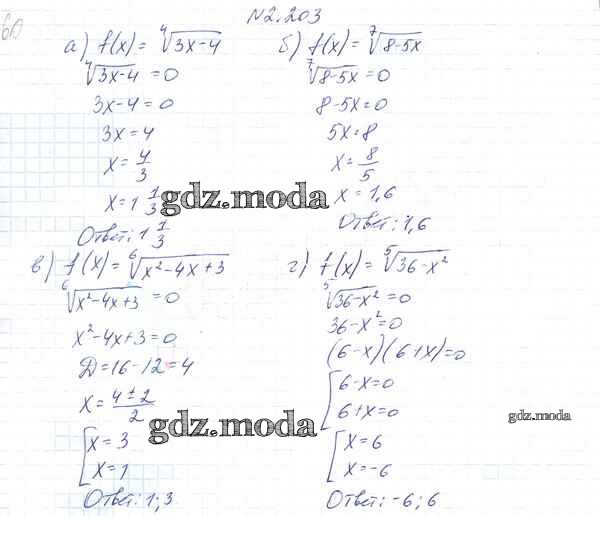 60
№2.203
а) f(x) = ⁴√(3x-4)
⁴√(3x-4) = 0
3x-4 = 0
3x = 4
x = 4/3
x = 1 1/3
Ответ: 1 1/3
б) f(x) = ⁷√(8-5x)
⁷√(8-5x) = 0
8-5x = 0
5x = 8
x = 8/5
x = 1,6
Ответ: 1,6
gdz.moda
в) f(x) = ⁶√(x²-4x+3)
⁶√(x²-4x+3) = 0
x²-4x+3 = 0
Д = 16-12 = 4
x = (4±2)/2
[x = 3
x = 1
Ответ: 1; 3
gdz.moda
г) f(x) = ⁵√(36-x²)
⁵√(36-x²) = 0
36-x² = 0
(6-x)(6+x) = 0
[6-x = 0
6+x = 0
[x = 6
x = -6
Ответ: -6; 6
gdz.moda